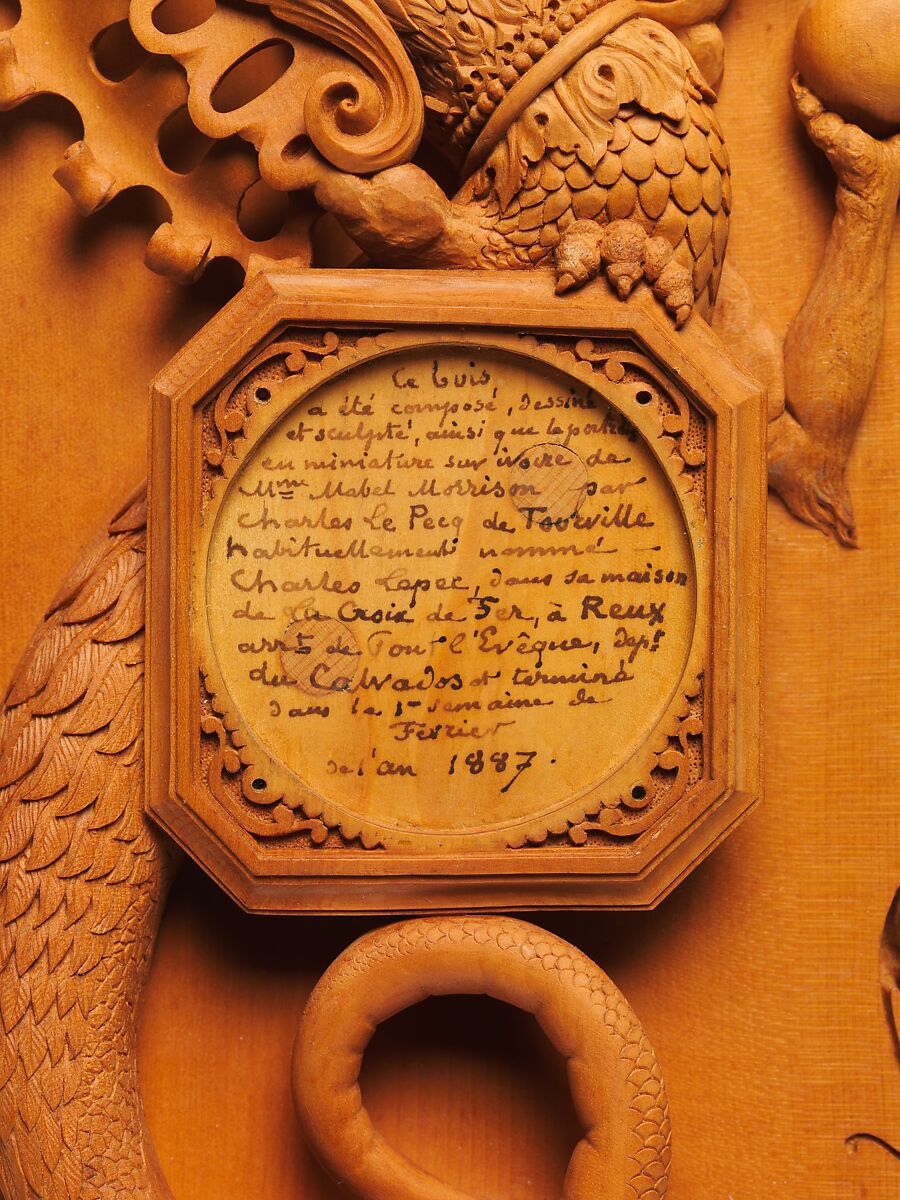 Ce buis
a été composé, dessiné
et sculpté, ainsi que le portrait
en miniature sur ivoire de
Mme Mabel Morrison par
Charles Le Pecq de Tourville
habituellement nommé —
Charles Lepec, dans sa maison
de la Croix de Fer, à Reux
arrt de Pont l'Evêque, dept
du Calvados et terminé
dans la 1re semaine de
Fevrier
de l'an 1887.